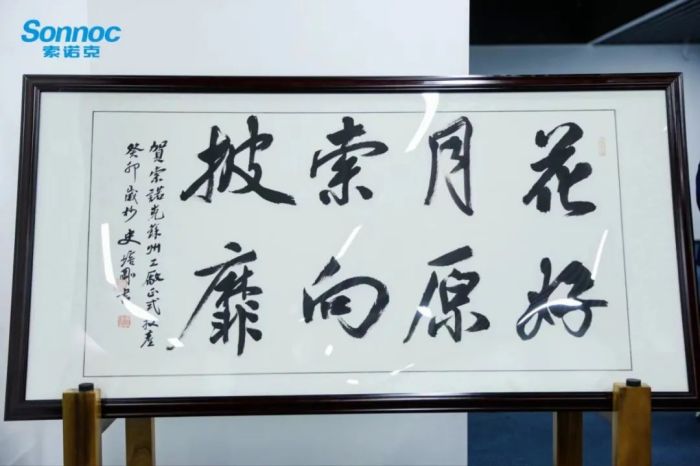 Sonnoc
索诺克
花好
月原
索向
披靡
贺索諾克蘇州工廠正式投產
癸卯歲杪史培剛书